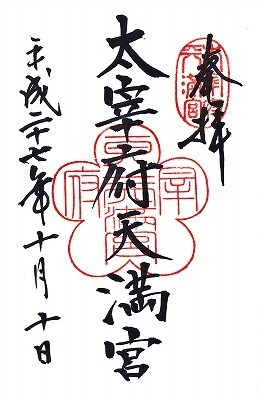 奉拝
太宰府天満宮
平成二十七年十月十日